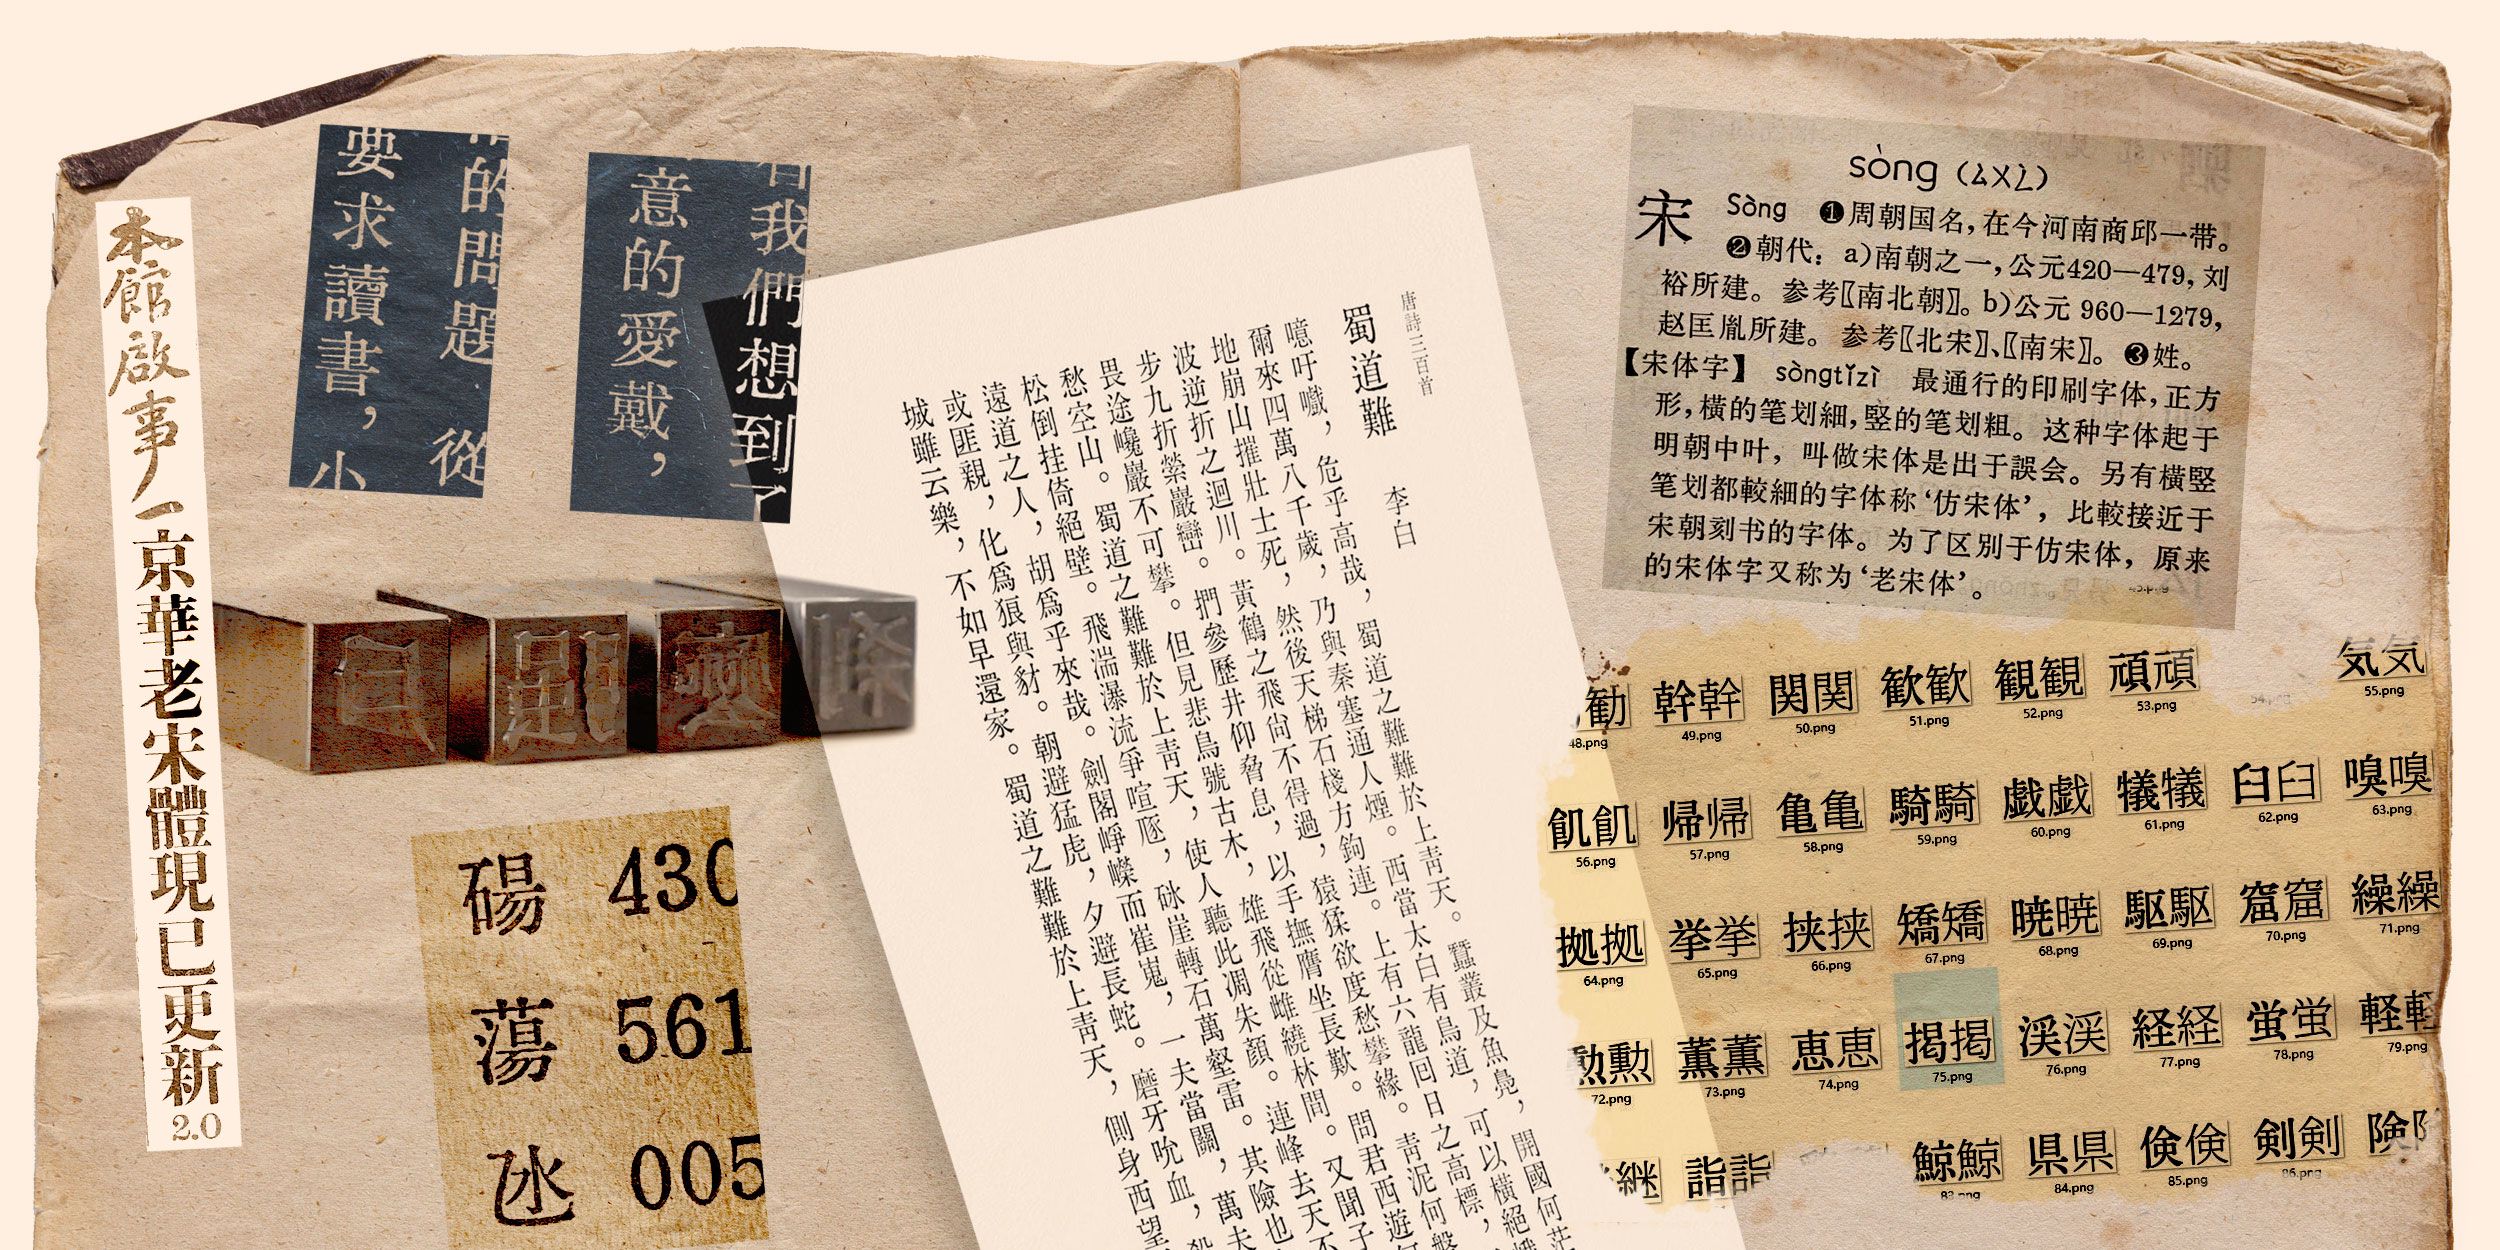 本館啟事
京華老宋體現已更新
2.0
的問題 從
要求讀書，小
我們想到了
意的愛戴，
碭 430
蕩 561
氹 005
唐詩三百首
蜀道難 李白
噫吁嚱，危乎高哉，蜀道之難難於上靑天。蠶叢及魚鳧，開國何茫
爾來四萬八千歲，乃與秦塞通人煙。西當太白有鳥道，可以橫絕
地崩山摧壯士死，然後天梯石棧方鉤連。上有六龍回日之高標，
波逆折之迴川。黃鶴之飛尙不得過，猿猱欲度愁攀緣。靑泥何盤
步九折縈巖巒。捫參歷井仰脅息，以手撫膺坐長歎。問君西遊
畏途巉巖不可攀。但見悲鳥號古木，雄飛從雌繞林間。又聞子
愁空山。蜀道之難難於上靑天，使人聽此凋朱顏。連峰去天不
松倒挂倚絕壁。飛湍瀑流爭喧豗，砯崖轉石萬壑雷。其險也
遠道之人，胡爲乎來哉。劍閣崢嶸而崔嵬，一夫當關，萬夫
或匪親，化爲狼與豺。朝避猛虎，夕避長蛇。磨牙吮血，
城雖云樂，不如早還家。蜀道之難難於上靑天，側身西望
sòng（ㄙㄨㄥˋ）
宋 Sòng ❶周朝国名，在今河南商邱一带。
❷朝代：a)南朝之一，公元420—479，刘
裕所建。参考〖南北朝〗。b)公元 960—1279，
赵匡胤所建。参考〖北宋〗、〖南宋〗。❸姓。
【宋体字】 sòngtǐzì 最通行的印刷字体，正方
形，橫的笔划細，竪的笔划粗。这种字体起于
明朝中叶，叫做宋体是出于誤会。另有橫竪
笔划都較細的字体称‘仿宋体’，比較接近于
宋朝刻书的字体。为了区別于仿宋体，原来
的宋体字又称为‘老宋体’。
勧 幹幹 関関 歓歓 観観 頑頑 気気
48.png 49.png 50.png 51.png 52.png 53.png 54.png 55.png
飢飢 帰帰 亀亀 騎騎 戯戯 犠犠 臼臼 嗅嗅
56.png 57.png 58.png 59.png 60.png 61.png 62.png 63.png
拠拠 挙挙 挟挟 矯矯 暁暁 駆駆 窟窟 繰繰
64.png 65.png 66.png 67.png 68.png 69.png 70.png 71.png
勲勲 薫薫 恵恵 掲掲 渓渓 経経 蛍蛍 軽軽
72.png 73.png 74.png 75.png 76.png 77.png 78.png 79.png
継 詣詣 鯨鯨 県県 倹倹 剣剣 険
83.png 84.png 85.png 86.png